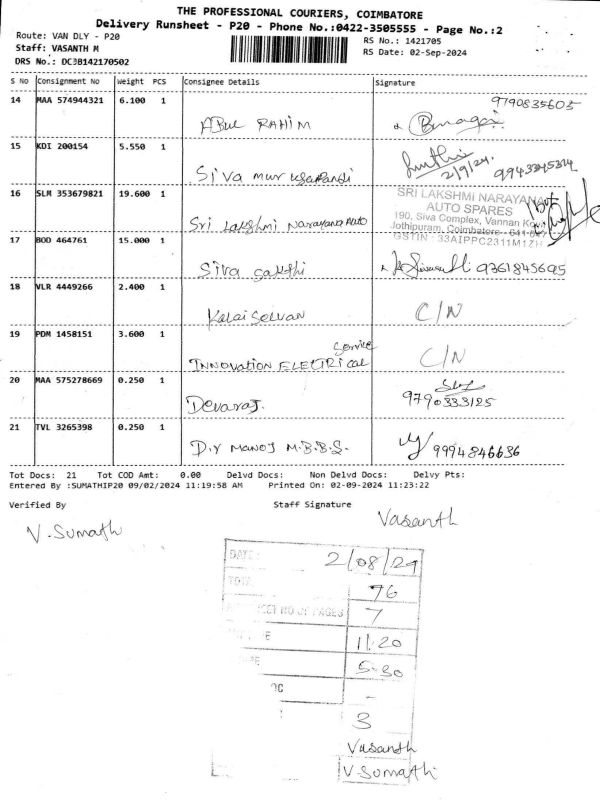 THE PROFESSIONAL COURIERS, COIMBATORE
Delivery Runsheet - P20 - Phone No.:0422-3505555 - Page No.:2
Route: VAN DLY - P20
RS No.: 1421705
Staff: VASANTH M
RS Date: 02-Sep-2024
DRS No.: DC3B142170502
S No Consignment No Weight PCS Consignee Details Signature
14 MAA 574944321 6.100 1
ABUL RAHIM
9790835605
15 KDI 200154 5.550 1
Siva murugapandi
2/9/24.
16 SLM 353679821 19.600 1
Sri Lakshmi Narayana Auto
SRI LAKSHMI NARAYANA
AUTO SPARES
190, Siva Complex, Vannan
Jothipuram, Coimbatore - 641
GSTIN : 33AIPPC2311M1ZH
17 BOD 464761 15.000 1
Siva Sakthi
9361845695
18 VLR 4449266 2.400 1
Kalai Selvan
C/N
19 PDM 1458151 3.600 1
Service
INNOVATION ELECTRICAL
C/N
20 MAA 575278669 0.250 1
Devaraj.
9790333125
21 TVL 3265398 0.250 1
D.r MANOJ M.B.B.S.
9994846636
Tot Docs: 21 Tot COD Amt: 0.00 Delvd Docs: Non Delvd Docs: Delvy Pts:
Entered By :SUMATHIP20 09/02/2024 11:19:58 AM Printed On: 02-09-2024 11:23:22
Verified By Staff Signature
V. Sumathi
Vasanth
DATE: 2/08/24
TOTAL 76
NO OF PAGES 7
11.20
5-30
-
3
Vasanth
V. Sumathi